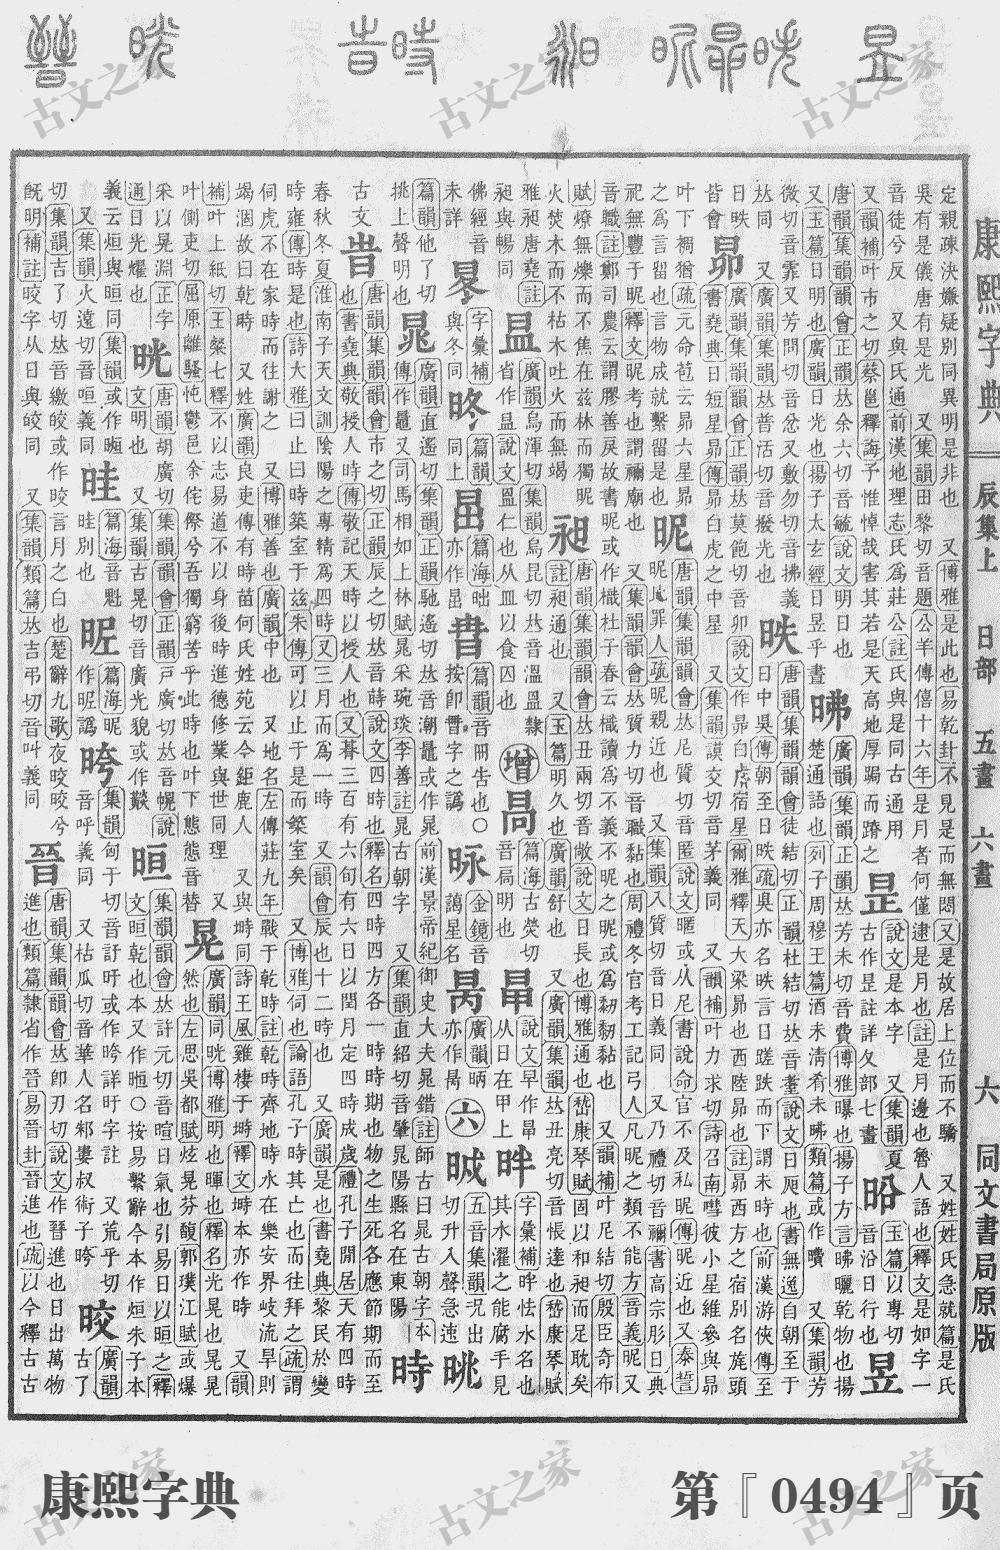 康熙字典　辰集上　日部　五畫　六畫　六　同文書局原版
定親疎決嫌疑別同異明是非也　又博雅是此也易乾卦不見是而無悶又是故居上位而不驕　又姓姓氏急就篇是氏
吳有是儀唐有是光　又集韻田黎切音題公羊傳僖十六年是月者何僅逮是月也註是月邊也魯人語也釋文是如字一
音徒兮反　又與氏通前漢地理志氏為莊公註氏與是同古通用　昰　說文是本字　又集韻夏
又韻補叶市之切蔡邕釋誨子惟悼哉害其若是天高地厚跼而蹐之　古作昰註詳夊部七畫　昖　玉篇以專切音沿日行也　昱
唐韻集韻韻會正韻𠀤余六切音毓說文明日也
又玉篇日明也廣韻日光也揚子太玄經日昱乎晝　昲　廣韻集韻正韻𠀤芳未切音費博雅曝也揚子方言昲曬乾物也揚
楚通語也列子周穆王篇酒未淸肴未昲類篇或作曊　又集韻芳
微切音霏又芳問切音忿又敷勿切音拂義
𠀤同　昳　唐韻集韻韻會徒結切正韻杜結切𠀤音耋說文日昃也書無逸自朝至于
日昳　又廣韻集韻𠀤普活切音鏺光也　日中昊傳朝至日昳疏昊亦名昳言日蹉跌而下謂未時也前漢游俠傳至
日昳皆會　昴　廣韻集韻韻會正韻𠀤莫飽切音卯說文作昴白虎宿星爾雅釋天大梁昴也西陸昴也註昴西方之宿別名旄頭
書堯典日短星昴傳昴白虎之中星　又集韻謨交切音茅義同　又韻補叶力求切詩召南嘒彼小星維參與昴
叶下裯猶疏元命苞云昴六星昴
之為言留也言物成就繫留是也　昵　唐韻集韻韻會𠀤尼質切音匿說文暱或从尼書說命官不及私昵傳昵近也又泰誓
昵比罪人疏昵親近也　又集韻入質切音日義同　又乃禮切音禰書高宗肜日典
祀無豐于昵釋文昵考也謂禰廟也　又集韻韻會𠀤質力切音職黏也周禮冬官考工記弓人凡昵之類不能方音義昵又
音職註鄭司農云謂膠善戾故書昵或作樴杜子春云樴讀為不義不昵之昵或為䵑䵑黏也　又韻補叶尼結切殷臣奇布
賦燎無爍而不焦在茲林而獨昵
火焚木而不枯木吐火而無竭　昶　唐韻集韻韻會𠀤丑兩切音敞說文日長也博雅通也嵇康琴賦固以和昶而足耽矣
註昶通也　又玉篇明久也廣韻舒也　又廣韻集韻𠀤丑亮切音悵達也嵇康琴賦
雅昶唐堯註
昶與暢同　昷　廣韻烏渾切集韻烏昆切𠀤音溫昷隸省作昷說文𥁕仁也从皿以食囚也　增　𣅘　篇海古熒切音扃明也　說文早本字从日在甲上　字彙補畔怯水名也其水濯之能腐手見
佛經音未詳　字彙補與冬同　昸　篇韻同上　昌　篇海昢亦作昌　昔　篇韻音冊告也○按卽朁字之譌　昹　金鏡音藹星名　昺　廣韻昞亦作昺　六　晠　五音集韻況出切升入聲急速　晀
篇韻他了切
挑上聲明也　晁　廣韻直遙切集韻正韻馳遙切𠀤音潮鼂或作晁前漢景帝紀御史大夫晁錯註師古曰晁古朝字本
傳作鼂又司馬相如上林賦晁采琬琰李善註晁古朝字　又集韻直紹切音肇晁陽縣名在東陽　時
古文　旹　唐韻集韻韻會市之切正韻辰之切𠀤音蒔說文四時也釋名四時四方各一時時期也物之生死各應節期而至
也書堯典敬授人時傳敬記天時以授人也又朞三百有六旬有六日以閏月定四時成歲禮孔子閒居天有四時
春秋冬夏淮南子天文訓陰陽之專精為四時又三月而為一時　又韻會辰也十二時也　又廣韻是也書堯典黎民於變
時雍傳時是也詩大雅曰止曰時築室于茲朱傳可以止于是而築室矣　又博雅伺也論語孔子時其亡也而往拜之疏謂
伺虎不在家時而往謝之　又博雅善也廣韻中也　又地名左傳莊九年戰于乾時註乾時齊地時水在樂安界岐流旱則
竭涸故曰乾時　又姓廣韻良吏傳有時苗何氏姓苑云今鉅鹿人　又與塒同詩王風雞棲于塒釋文塒本亦作時　又韻
補叶上紙切王粲七釋不以志易道不以身後時進德修業與世同理　又
叶側吏切屈原離騷忳鬱邑余侘傺兮吾獨窮苦乎此時也叶下態態音替　晃　廣韻同晄博雅明也暉也釋名光晃也晃晃
然也左思吳都賦炫晃芬馥郭璞江賦或爆
采以晃淵正字
通日光燿也　晄　唐韻胡廣切集韻韻會正韻戸廣切𠀤音幌說文明也　又集韻古晃切音廣光貌或作㷮　晅　集韻韻會𠀤許元切音暄日氣也引易日以晅之釋
文晅乾也本又作暅○按易繫辭今本作烜朱子本
義云烜與晅同集韻或作暅
又集韻火遠切音咺義同　晆　篇海音魁晆別也　昵　篇海昵作昵譌　晇　集韻匈于切音訏旴或作晇詳旴字註　又荒乎切
音呼義同　又枯瓜切音華人名邾婁叔術子晇　晈　廣韻古了
切集韻吉了切𠀤音繳皎或作晈言月之白也楚辭九歌夜晈晈兮
旣明補註晈字从日與皎同　又集韻類篇𠀤吉弔切音叫義同　晉　唐韻集韻韻會𠀤卽刃切說文作㬜進也日出萬物
進也類篇隸省作晉易晉卦晉進也疏以今釋古古
古文之家
康熙字典
第『0494』页